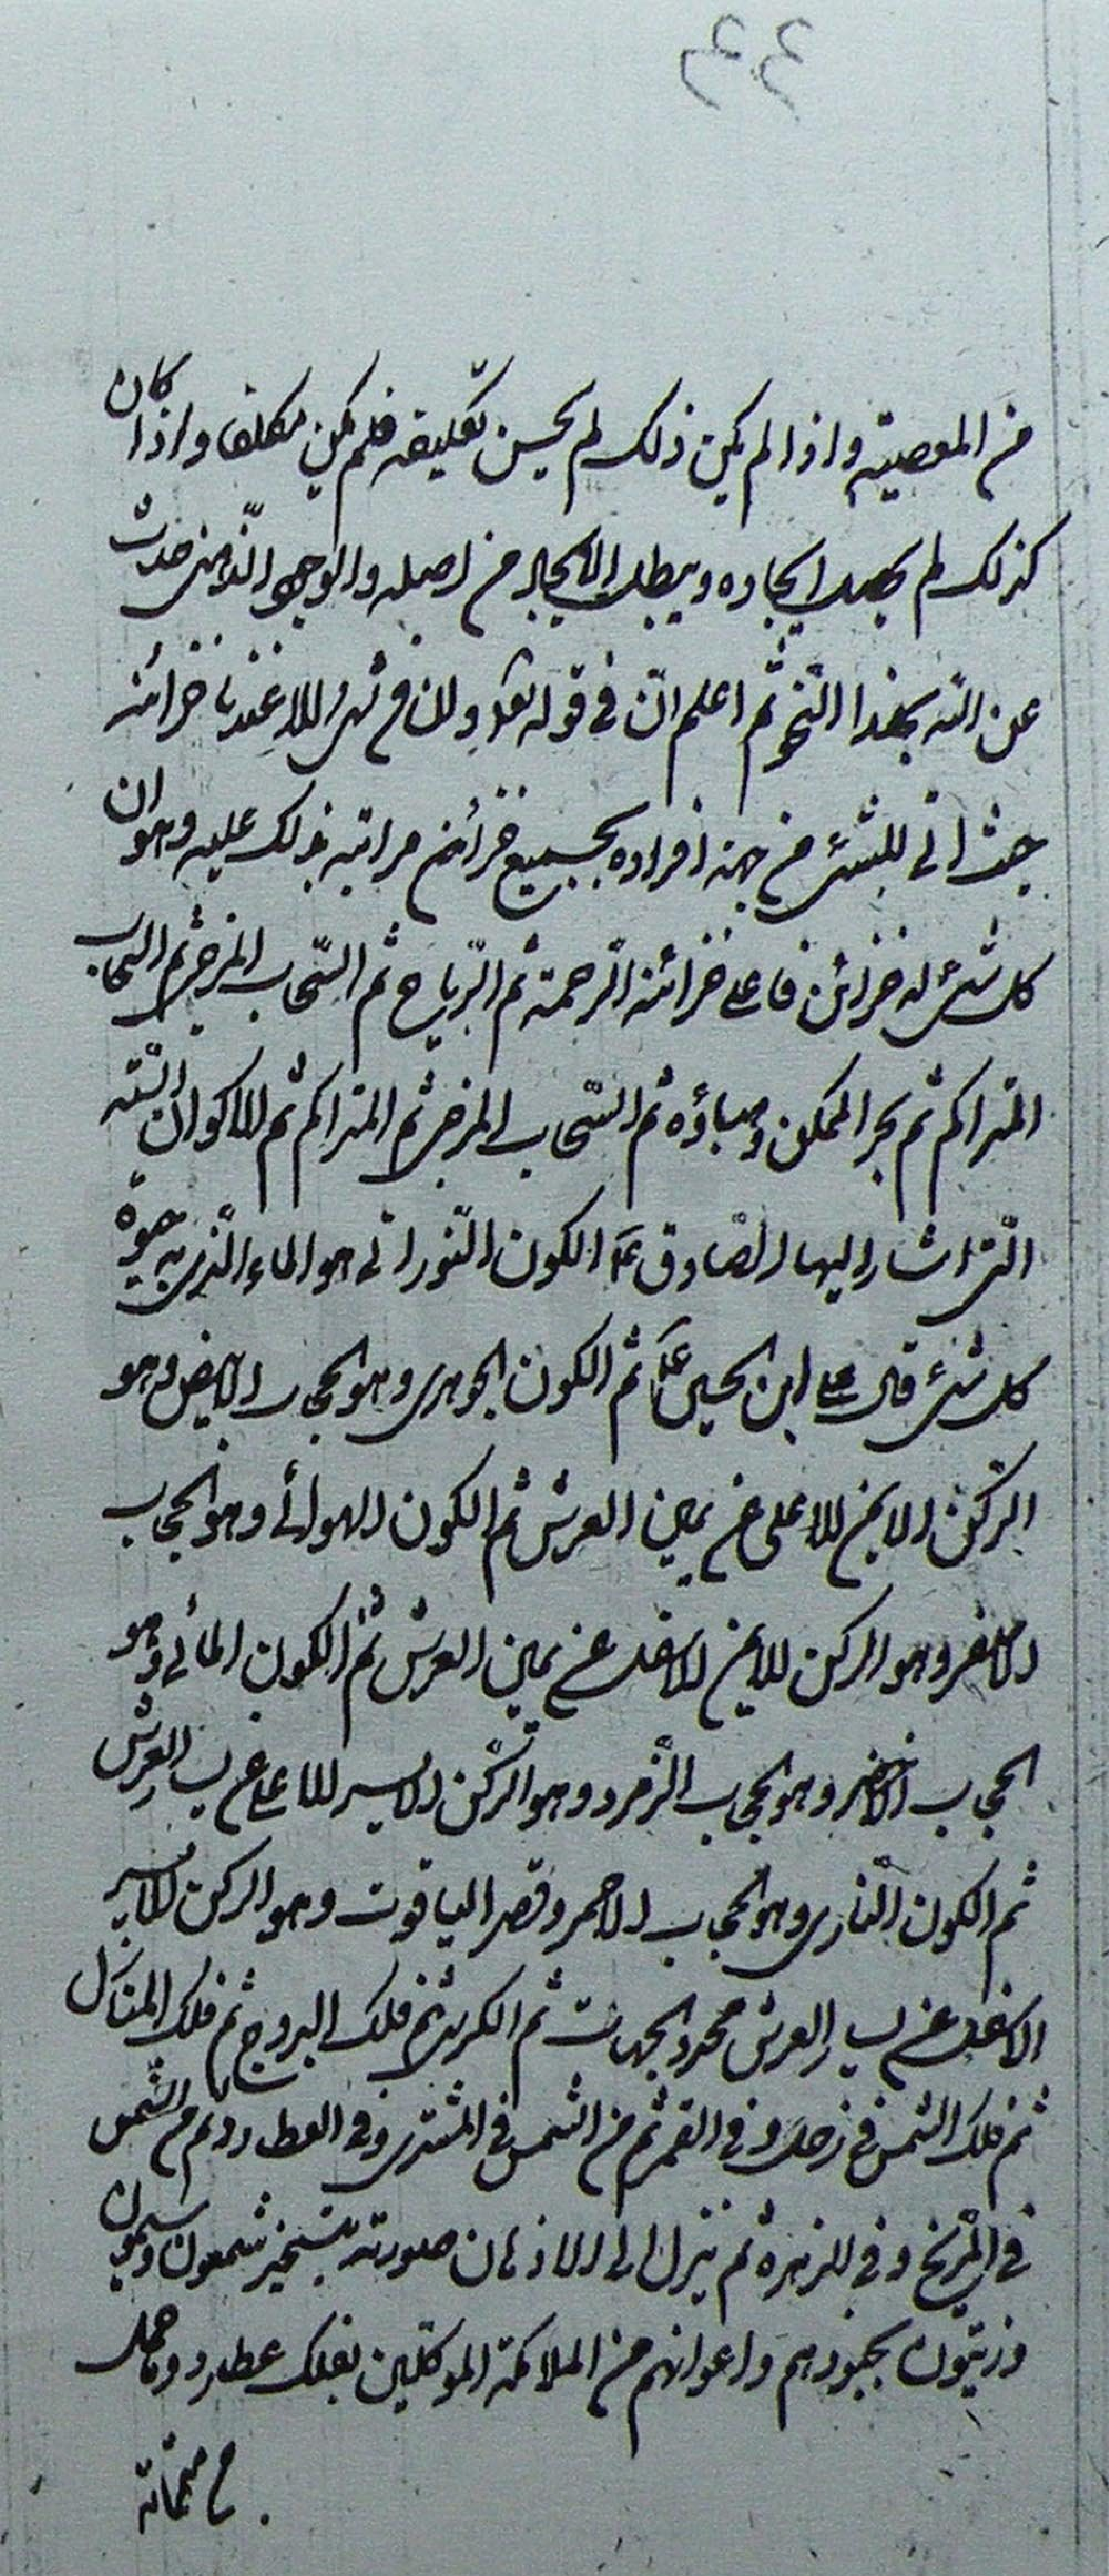 من المعصية واذا لم يكن ذلك لم يحسن تكليفه فلم يكن مكلفا واذا كان
كذلك لم يحسن ايجاده ويبطل الايجاد من اصله والوجه الثامن حدث
عن الله بهذا النحو ثم اعلم انّ في قوله تعالى وان من شئ الا عندنا خزائنه
بحث اتى للشئ من جهة افراده بجميع خزائن مراتبه ذلك عليه وهو ان
كل شئ له خزائن فاعلى خزائنه الرحمة ثم الرّياح ثم السّحاب المزجى ثم السحاب
المتراكم ثم بحر الممكن وصاؤه ثم السّحاب المزجى ثم المتراكم ثم الاكوان الستّة
الّتى اشار اليها الصّادق ع الكون النّورانى هو الماء الّذى به حيوة
كل شئ قال على ابن الحسين ع ثم الكون الجوهرى وهو الحجاب الابيض وهو
الركن الايمن الاعلى عن يمين العرش ثم الكون الهوائى وهو الحجاب
الاصفر وهو الركن الايمن الاسفل عن يمين العرش ثم الكون المائى وهو
الحجاب الاخضر وهو حجاب الزّمرد وهو الرّكن الايسر الاعلى عن يسار العرش
ثم الكون النّارى وهو الحجاب الاحمر وقصر الياقوت وهو الركن الايسر
الاسفل عن يسار العرش محدد الجهات ثم الكرسى ثم فلك البروج ثم فلك المنازل
ثم فلك الشمس فى زحل وفى القمر ثم من الشمس فى المشترى وفى العطارد ثم من الشمس
فى المرّيخ وفى الزهرة ثم نزل الى الاذهان صورته بتسخير شمعون وسيمون
وزيتون بجنودهم واعوانهم من الملائكة الموكّلين بفلك عطارد وحامل